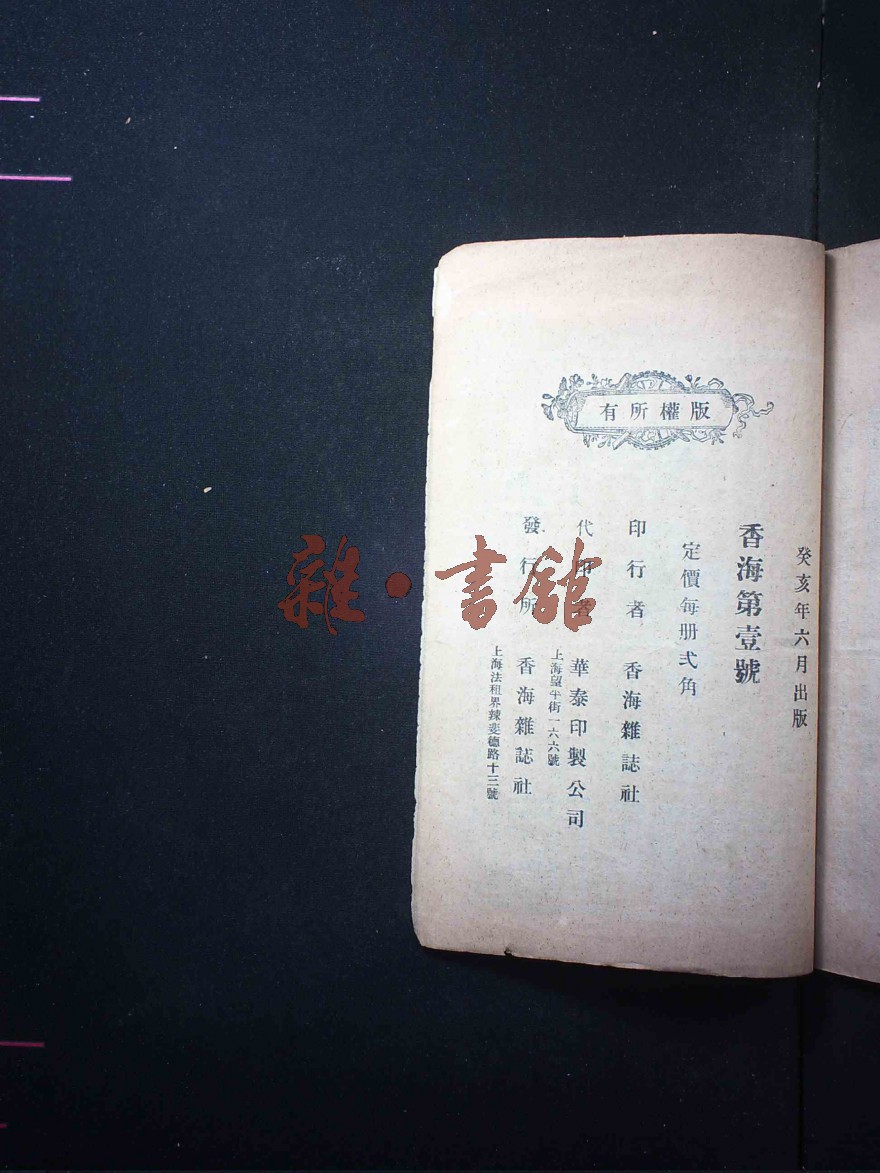 版權所有
癸亥年六月出版
香海第壹號
定價每册弍角
印行者 香海雜誌社
代印者 華泰印製公司
上海望平街一六六號
發行所 香海雜誌社
上海法租界辣斐德路十三號
雜·書館